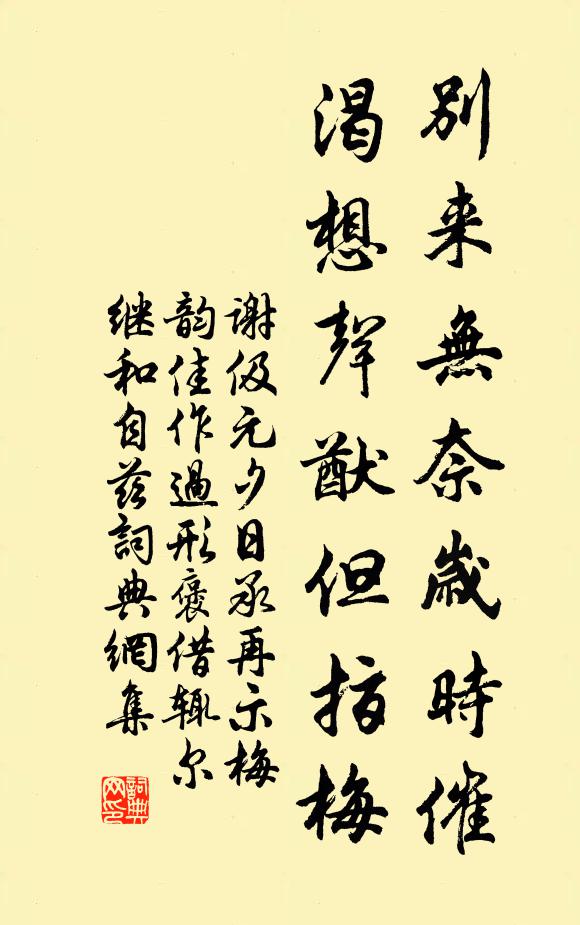 別来無奈歲時催
渴想聲猷但指梅
谢伋元夕日承再示梅
韵佳作過形褒借辄尔
继和自兹詞典網集
詞典網印